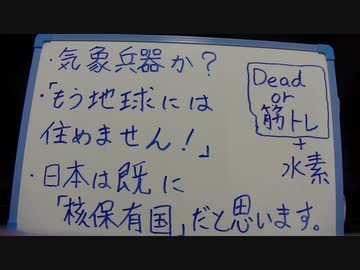 ・気象兵器か？
・「もう地球には
住めません！」
・日本は既に
「核保有国」だと思います。
Dead
or
筋トレ
+
水素